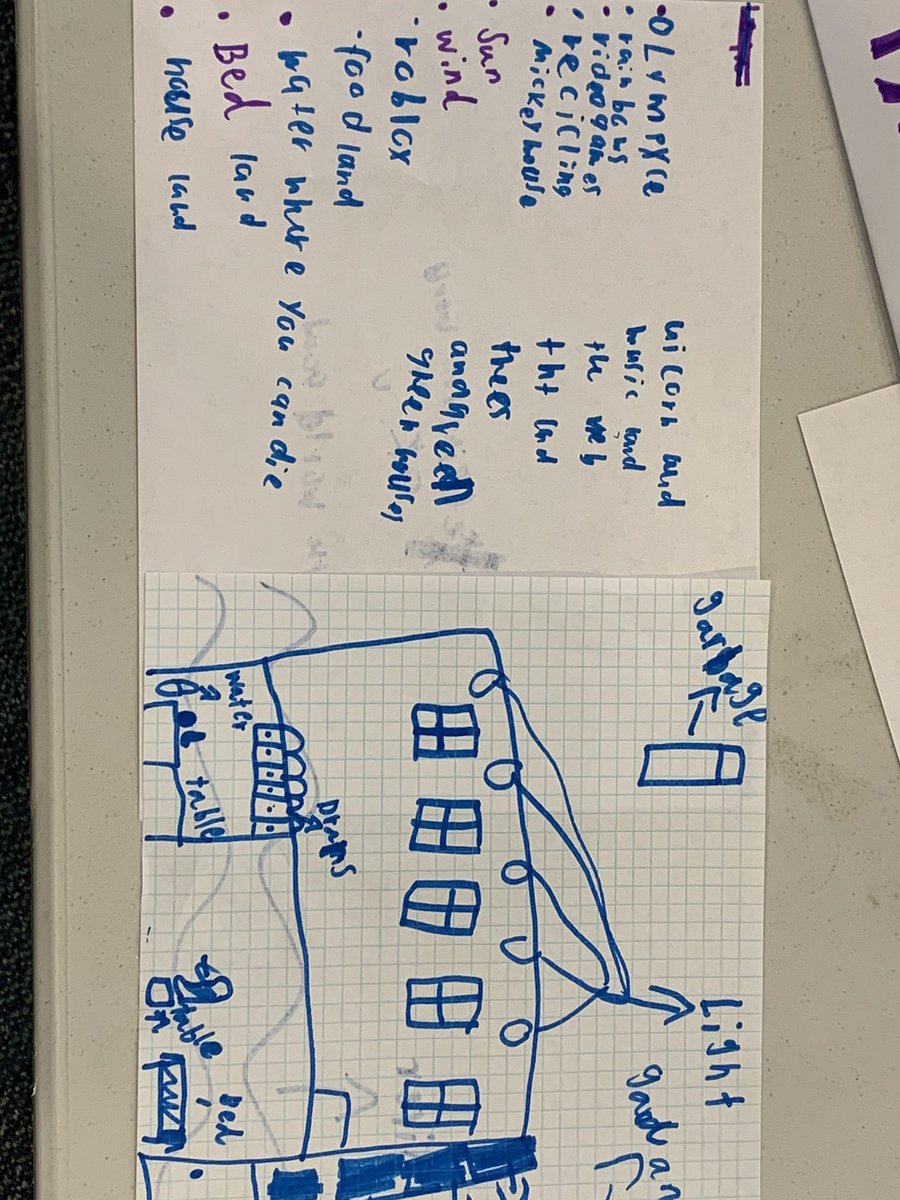 • rainbows
• vidpogames
• recicling
• Mickey house
• Sun
• wind
- roblox
- food land
• water where you can die
• Bed land
• house land
uicorn and
music land
the web
tht land
thees
green houses
garbage
Light
gardan
water
table
table